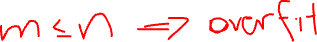 m ≤ n ⇒ overfit